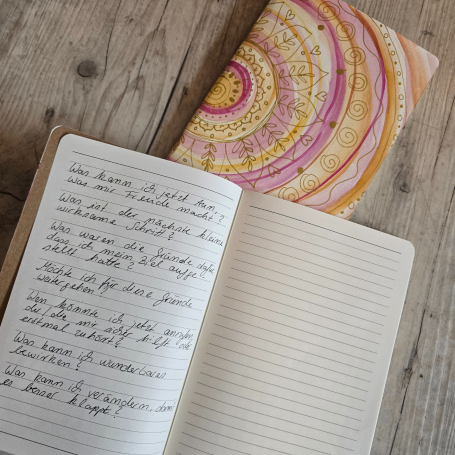 Was kann ich jetzt tun,
was mir Freude macht?
Was ist der nächste kleine
wirksame Schritt?
Was waren die Gründe dafür
dass ich mein Ziel aufge-
stellt hatte?
Möchte ich für diese Gründe
weitergehen?
Wen könnte ich jetzt anrufen
der/die mir sicher hilft oder
erstmal zuhört?
Was kann ich wunderbares
bewirken?
Was kann ich verändern, damit
es besser klappt?